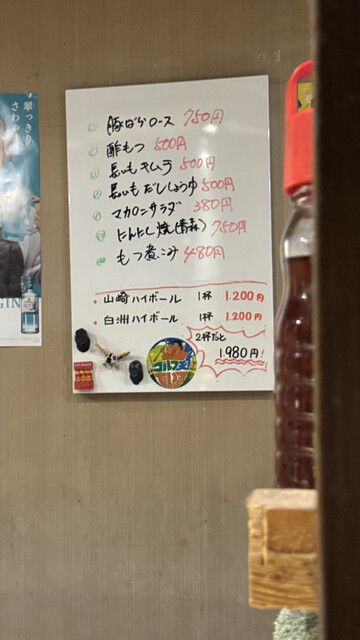 翠っきり
さわや
豚ばらロース 750円
酢もつ 500円
長いもキムチ 500円
長いもだししょうゆ 500円
マカロニサラダ 380円
にんにく焼(青森) 750円
もつ煮込み 480円
山崎ハイボール 1杯 1.200円
白洲ハイボール 1杯 1.200円
2杯だと
1.980円!
GIN